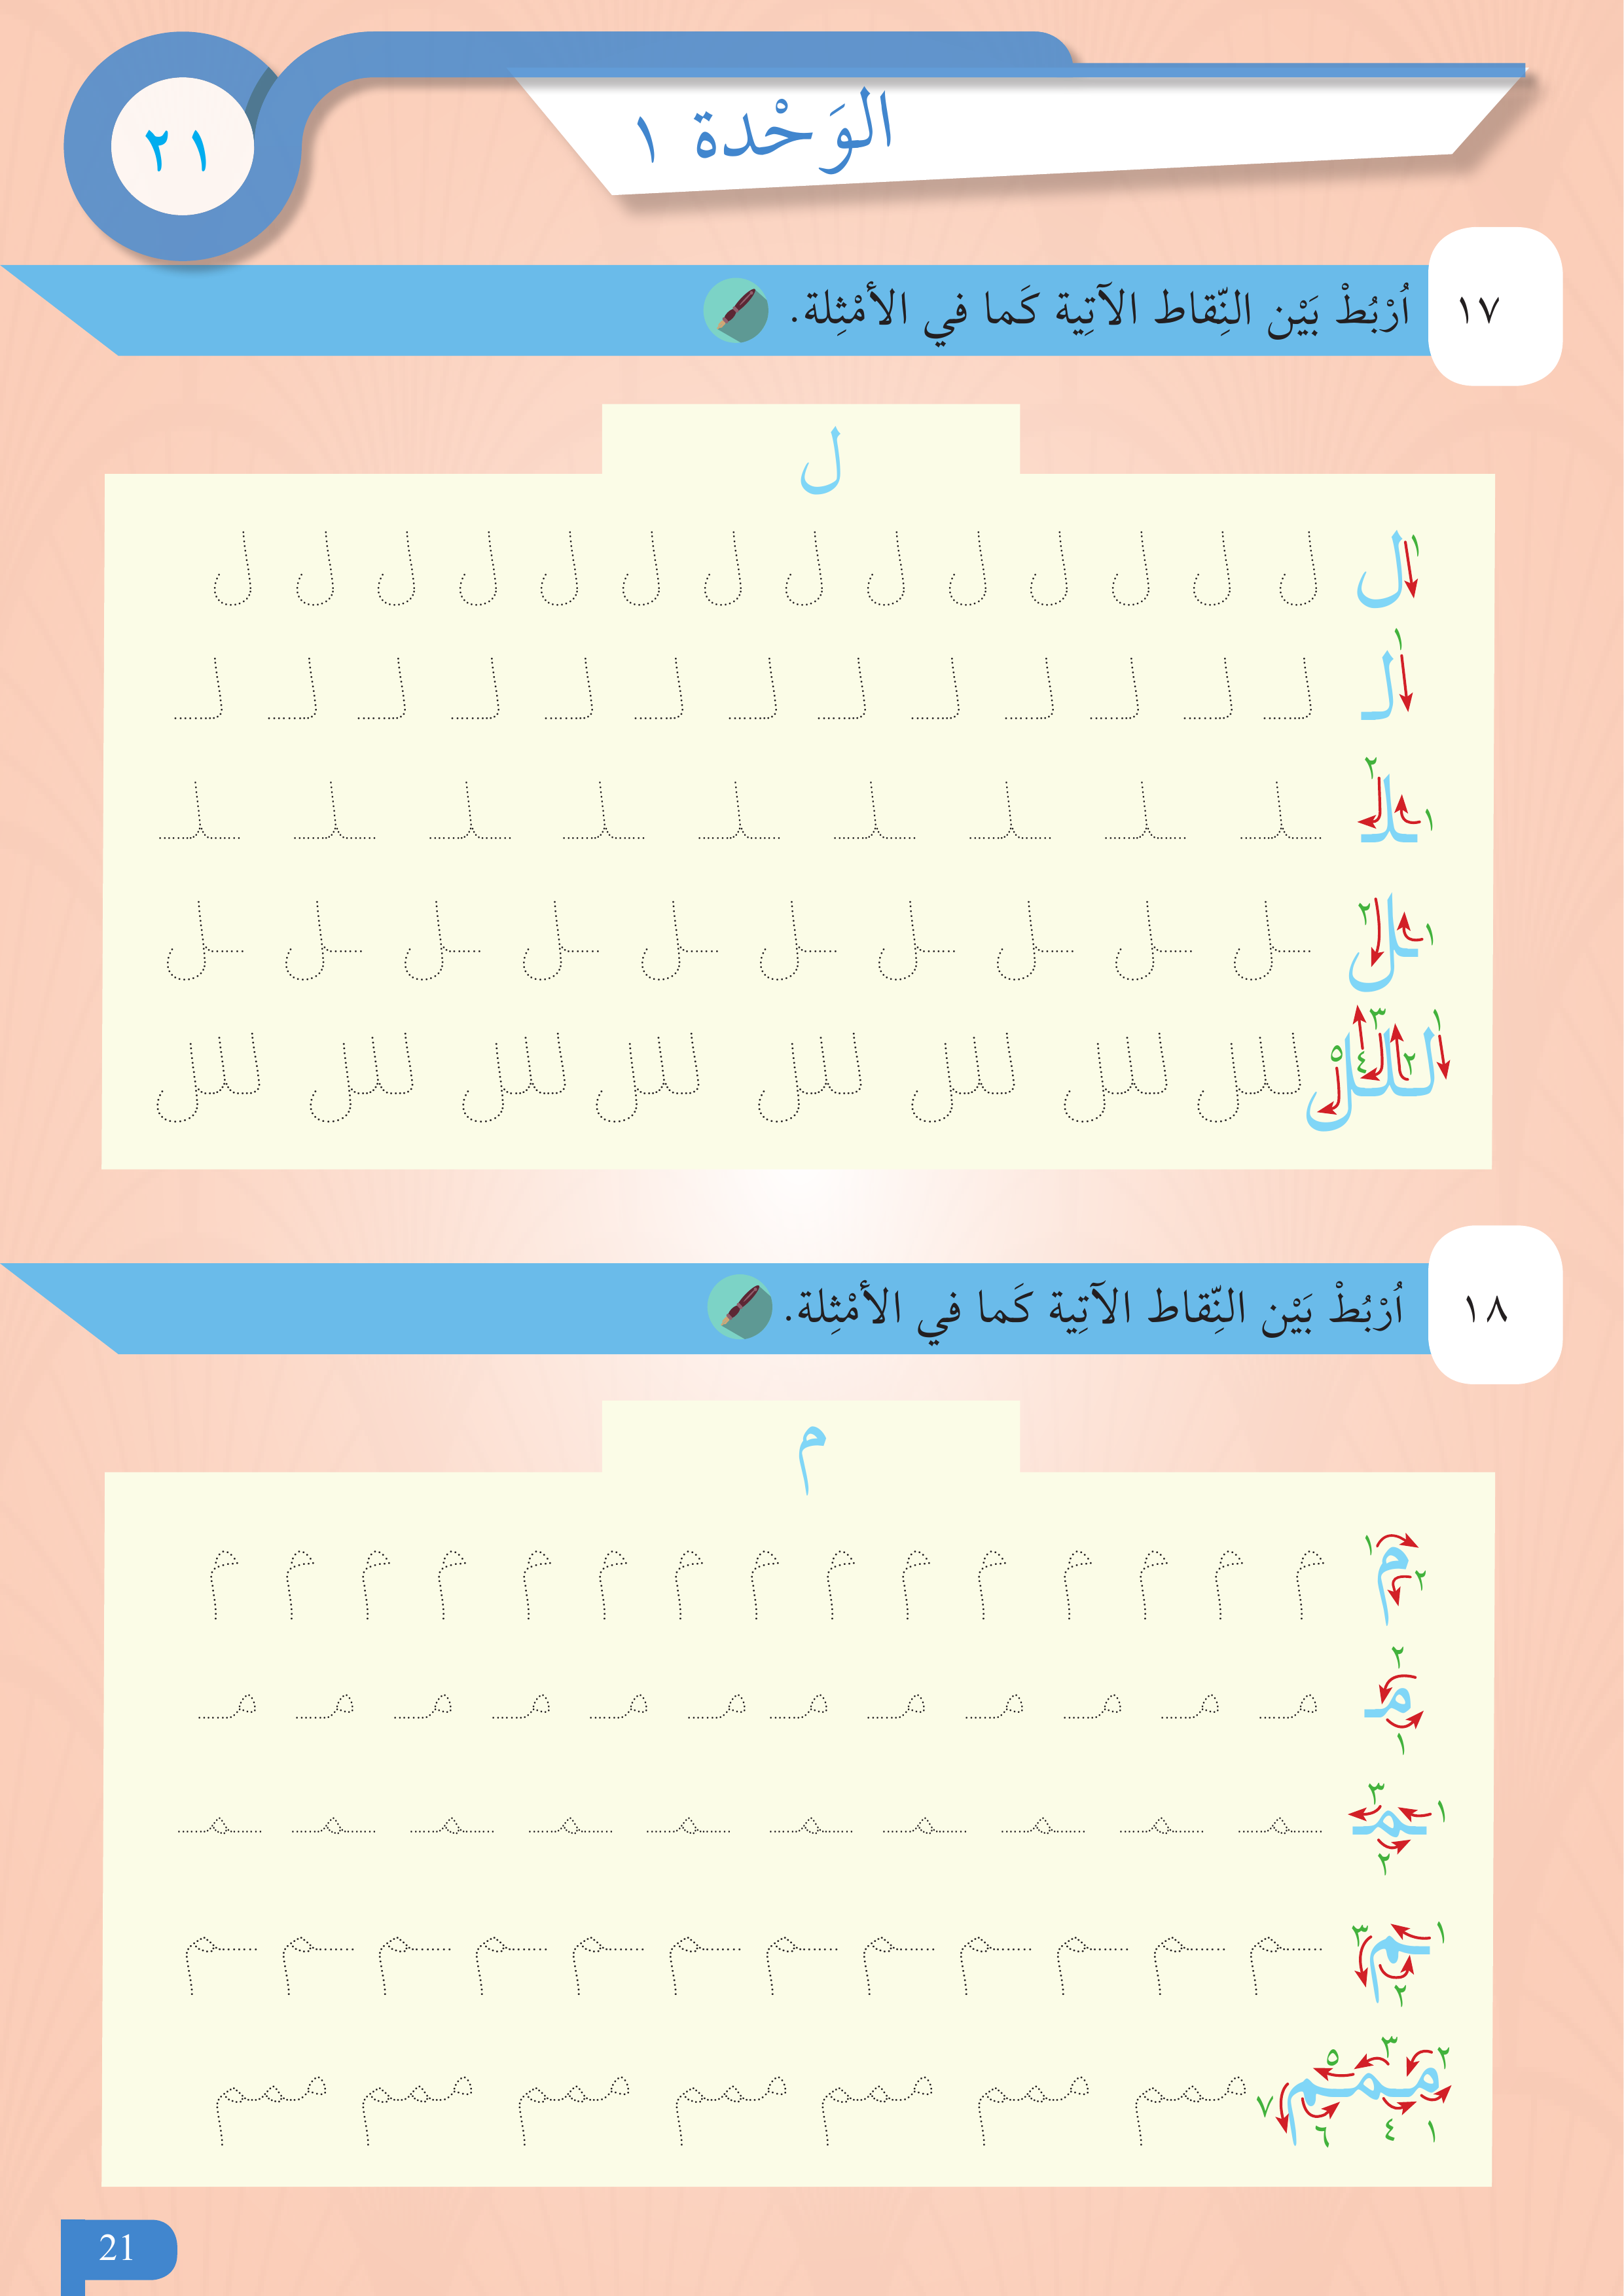 ٢١
الوَحْدة ١
١٧
اُرْبُطْ بَيْن النِّقاط الآتِية كَما في الأمْثِلة.
ل
١
ل ل ل ل ل ل ل ل ل ل ل ل ل ل ل
١
لـ لـ لـ لـ لـ لـ لـ لـ لـ لـ لـ لـ لـ لـ
١ ٢
ـلـ ـلـ ـلـ ـلـ ـلـ ـلـ ـلـ ـلـ ـلـ ـلـ
١ ٢
ـل ـل ـل ـل ـل ـل ـل ـل ـل ـل ـل
١ ٢ ٣ ٤ ٥
للل للل للل للل للل للل للل للل للل
١٨
اُرْبُطْ بَيْن النِّقاط الآتِية كَما في الأمْثِلة.
م
١ ٢
م م م م م م م م م م م م م م م م
٢ ١
مـ مـ مـ مـ مـ مـ مـ مـ مـ مـ مـ مـ مـ
١ ٣ ٢
ـمـ ـمـ ـمـ ـمـ ـمـ ـمـ ـمـ ـمـ ـمـ ـمـ ـمـ
١ ٣ ٢
ـم ـم ـم ـم ـم ـم ـم ـم ـم ـم ـم ـم ـم
٢ ٣ ٥ ٧ ١ ٤ ٦
ممم ممم ممم ممم ممم ممم ممم ممم
21